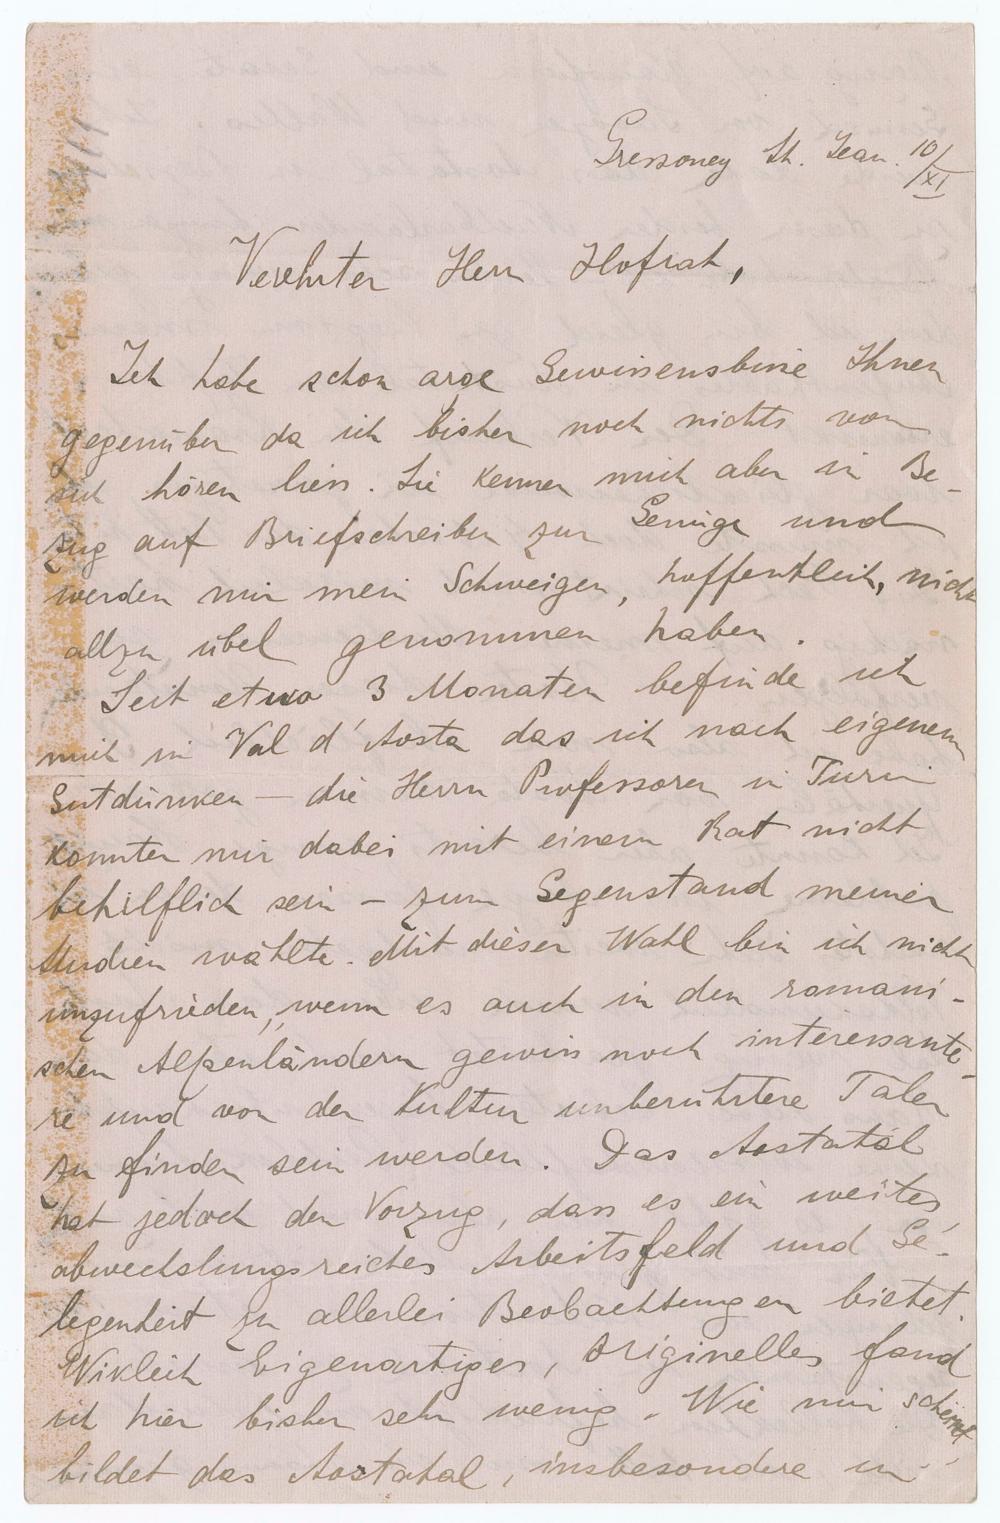 Gressoney St. Jean. 10/XI
Verehrter Herr Hofrat,
Ich habe schon arge Gewissensbisse Ihnen
gegenüber da ich bisher noch nichts von
sich hören liess. Sie kennen mich aber in Be-
zug auf Briefschreiben zur Genüge und
werden mir mein Schweigen, hoffentlich, nicht
allzu übel genommen haben.
Seit etwa 3 Monaten befinde ich
mich in Val d'Aosta das ich nach eigenem
Gutdünken — die Herrn Professoren in Turin
konnten mir dabei mit einem Rat nicht
behilflich sein – zum Gegenstand meiner
Studien wählte. Mit dieser Wahl bin ich nicht
unzufrieden, wenn es auch in den romani-
schen Alpenländern gewiss noch interessante-
re und von der Kultur unberührtere Täler
zu finden sein werden. Das Aostatal
hat jedoch den Vorzug, dass es ein weites,
abwechslungsreiches Arbeitsfeld und Ge-
legenheit zu allerlei Beobachtungen bietet.
Wirklich Eigenartiges, Originelles fand
ich hier bisher sehr wenig. Wie mir scheint
bildet das Aostatal, insbesondere in